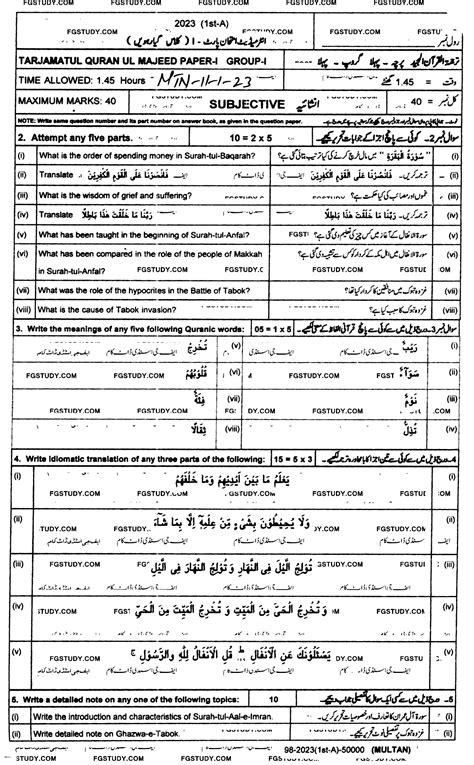 FGSTUDY.COM FGSTUDY.COM FGSTUDY.COM FGSTUDY.COM
2023 (1st-A)
FGSTUDY.COM FGSTUDY.COM
رول نمبر انٹرمیڈیٹ امتحان پارٹ - I (کلاس گیارہویں)
TARJAMATUL QURAN UL MAJEED PAPER-I GROUP-I ترجمۃ القرآن المجید پرچہ - پہلا گروپ - پہلا
TIME ALLOWED: 1.45 Hours MTN-11-1-23 وقت = 1.45 گھنٹے
MAXIMUM MARKS: 40 SUBJECTIVE انشائیہ کل نمبر = 40
NOTE: Write same question number and its part number on answer book, as given in the question paper.
2. Attempt any five parts. 10 = 2 x 5 سوال نمبر 2- کوئی سے پانچ اجزا کے جوابات تحریر کیجیے۔
(i) What is the order of spending money in Surah-tul-Baqarah? "سُوْرَةُ الْبَقَرَةِ" میں مال خرچ کرنے کی کیا ترتیب بتائی گئی ہے؟ (i)
(ii) Translate فَانْصُرْنَا عَلَى الْقَوْمِ الْكٰفِرِيْنَ ترجمہ کریں۔ فَانْصُرْنَا عَلَى الْقَوْمِ الْكٰفِرِيْنَ (ii)
(iii) What is the wisdom of grief and suffering? غموں اور مصائب کی کیا حکمت ہے؟ (iii)
(iv) Translate رَبَّنَا مَا خَلَقْتَ هٰذَا بَاطِلًا ترجمہ کریں۔ رَبَّنَا مَا خَلَقْتَ هٰذَا بَاطِلًا (iv)
(v) What has been taught in the beginning of Surah-tul-Anfal? سورۃ الانفال کے آغاز میں کس چیز کی تعلیم دی گئی ہے؟ (v)
(vi) What has been compared in the role of the people of Makkah سورۃ الانفال میں اہل مکہ کے کردار کو کس سے تشبیہ دی گئی ہے؟ (vi)
in Surah-tul-Anfal? FGSTUDY.COM FGSTUDY.COM
(vii) What was the role of the hypocrites in the Battle of Tabok? غزوہ تبوک میں منافقین کا کردار کیا تھا؟ (vii)
(viii) What is the cause of Tabok invasion? غزوہ تبوک کا سبب کیا ہے؟ (viii)
3. Write the meanings of any five following Quranic words: 05 = 1 x 5 سوال نمبر 3- درج ذیل میں سے کوئی سے پانچ قرآنی الفاظ کے معنی لکھیے۔
تُخْرِجُ (v) رَيْبَ (i)
قُلُوْبُهُمْ (vi) سَوَآءٌ (ii)
FGSTUDY.COM FGSTUDY.COM FGSTUDY.COM
فِئَةٌ (vii) نَوْمٌ (iii)
ثِقَالًا (viii) تُذِلُّ (iv)
4. Write idiomatic translation of any three parts of the following: 15 = 5 x 3
(i) يَعْلَمُ مَا بَيْنَ اَيْدِيْهِمْ وَمَا خَلْفَهُمْ (i)
FGSTUDY.COM FGSTUDY.COM FGSTUDY.COM
(ii) وَلَا يُحِيْطُوْنَ بِشَيْءٍ مِّنْ عِلْمِهٖ اِلَّا بِمَا شَآءَ (ii)
(iii) تُوْلِجُ الَّيْلَ فِى النَّهَارِ وَتُوْلِجُ النَّهَارَ فِى الَّيْلِ (iii)
(iv) وَتُخْرِجُ الْحَيَّ مِنَ الْمَيِّتِ وَتُخْرِجُ الْمَيِّتَ مِنَ الْحَيِّ (iv)
(v) يَسْئَلُوْنَكَ عَنِ الْاَنْفَالِ ؕ قُلِ الْاَنْفَالُ لِلّٰهِ وَالرَّسُوْلِ ۚ (v)
5. Write a detailed note on any one of the following topics: 10
(i) Write the introduction and characteristics of Surah-tul-Aal-e-Imran. سورۃ آل عمران کا تعارف اور خصوصیات تحریر کریں۔ (i)
(ii) Write detailed note on Ghazwa-e-Tabok. غزوہ تبوک پر تفصیلی نوٹ تحریر کیجیے۔ (ii)
98-2023(1st-A)-50000 (MULTAN)